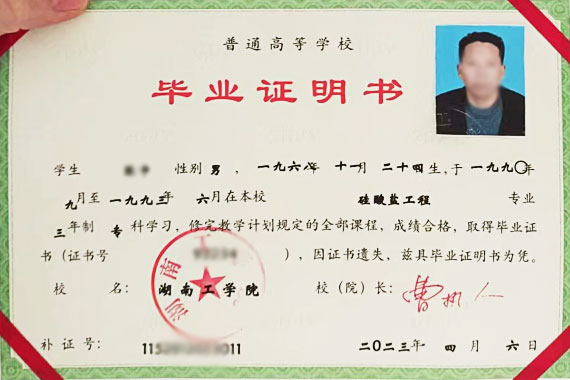 普通高等学校
毕业证明书
学生 性别 男，一九六八年 十一月 二十四日生，于一九九〇年
九月至一九九三年 六月在本校 硅酸盐工程 专业
三年制 专 科学习，修完教学计划规定的全部课程，成绩合格，取得毕业证
书（证书号 ），因证书遗失，兹具毕业证明书为凭。
校 名：湖南工学院 校（院）长：
补 证 号： 115 011 二〇二三年 四月 六日